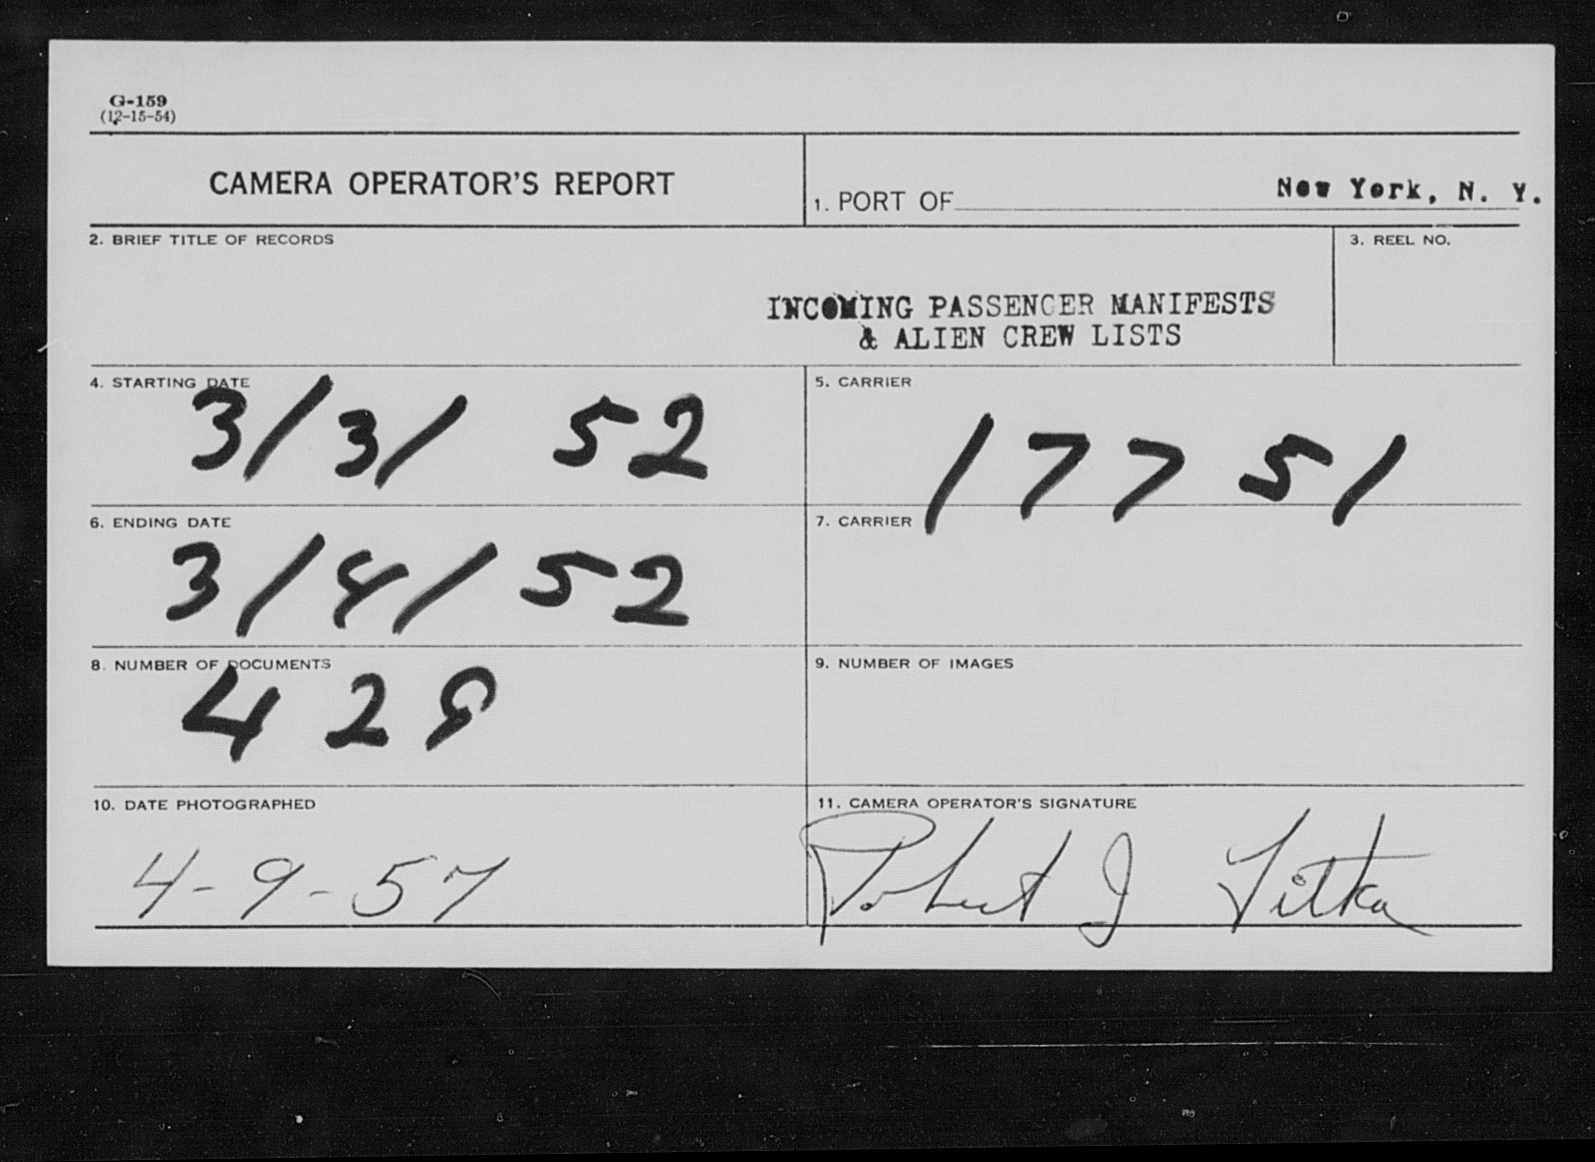 G-159
(12-15-54)
CAMERA OPERATOR'S REPORT
1. PORT OF New York, N. Y.
2. BRIEF TITLE OF RECORDS
INCOMING PASSENGER MANIFESTS
& ALIEN CREW LISTS
3. REEL NO.
4. STARTING DATE
3/3/52
5. CARRIER
17751
6. ENDING DATE
3/8/52
7. CARRIER
8. NUMBER OF DOCUMENTS
428
9. NUMBER OF IMAGES
10. DATE PHOTOGRAPHED
4-9-57
11. CAMERA OPERATOR'S SIGNATURE
Robert J